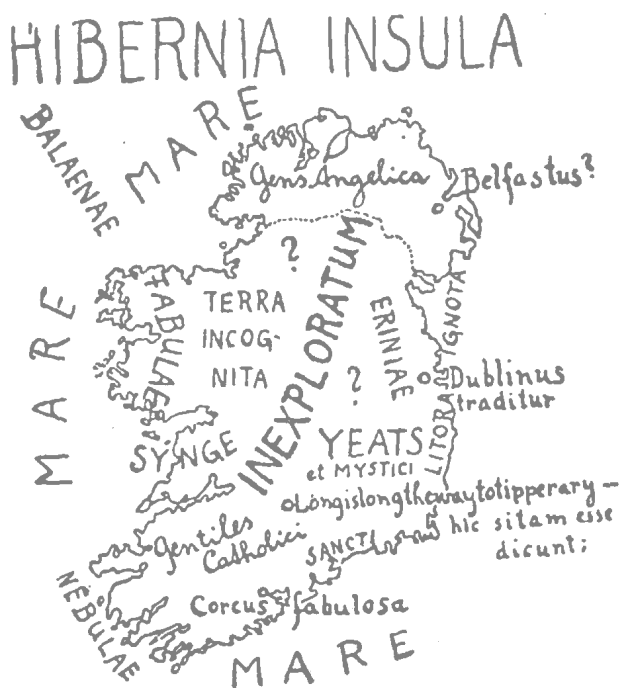 HIBERNIA INSULA
BALAENAE
MARE
Gens Angelica
Belfastus?
?
FABULAE
TERRA
INCOG-
NITA
INEXPLORATUM
ERINIAE
LITORA IGNOTA
MARE
?
Dublinus
traditur
SYNGE
YEATS
et MYSTICI
Longislongthewaytotipperary —
hic sitam esse
dicunt;
Gentiles
Catholici
SANCTI
NEBULAE
Corcus fabulosa
MARE